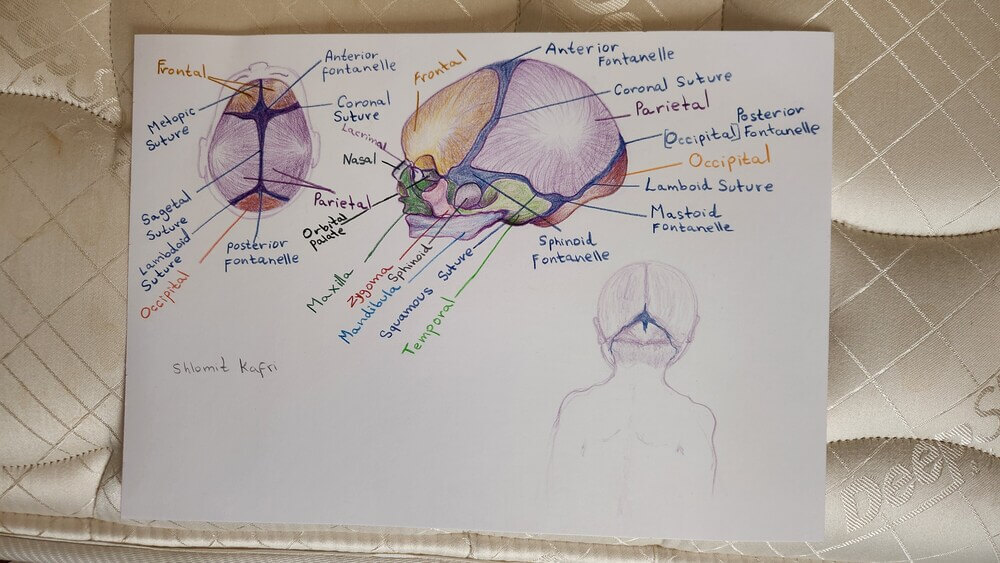 Frontal
Anterior
fontanelle
Metopic
Suture
Coronal
Suture
Sagetal
Suture
Lambdoid
Suture
Occipital
Posterior
fontanelle
Parietal
Lacrimal
Nasal
Orbital
Palate
Maxilla
Zygoma
Sphinoid
Mandibula
Squamous Suture
Temporal
Frontal
Anterior
Fontanelle
Coronal Suture
Parietal
Posterior
[Occipital] Fontanelle
Occipital
Lamboid Suture
Mastoid
Fontanelle
Sphinoid
Fontanelle
Shlomit Kafri
Deep